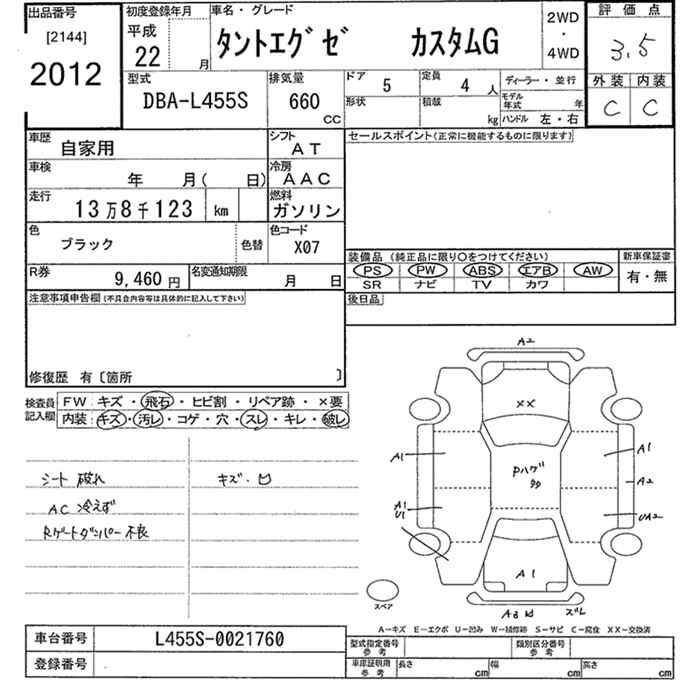 出品番号 [2144] 2012
初度登録年月 平成 22 月
車名・グレード タントエグゼ カスタムG
2WD ・ 4WD
評価点 3.5
外装 内装
C C
型式 DBA-L455S
排気量 660 CC
ドア 5 定員 4 人 ディーラー・並行
形状 積載 kg モデル年式 年 ハンドル 左・右
車歴 自家用
シフト AT
セールスポイント(正常に機能するものに限ります)
車検 年 月( 日)
冷房 AAC
走行 13万8千123 km
燃料 ガソリン
色 ブラック 色替
色コード X07
装備品(純正品に限り○をつけてください) 新車保証書
PS PW ABS エアB AW 有・無
SR ナビ TV カワ
R券 9,460 円 名変通知期限 月 日
後日品
注意事項申告欄(不具合内容等は具体的に記入して下さい)
修復歴 有〔箇所 〕
検査員記入欄 FW キズ・飛石・ヒビ割・リペア跡・×要
内装 キズ・汚レ・コゲ・穴・スレ・キレ・破レ
シート 破れ キズ・凹
AC 冷えず
Rゲートダンパー不良
A2
XX
A1 A1
Pハゲ
A2
A1
U1 UA2
A1
スペア
A-キズ E-エクボ U-凹み W-補修跡 S-サビ C-腐食 XX-交換済
車台番号 L455S-0021760
型式指定番号 参考 類別区分番号 参考
登録番号
車庫証明用 参考 長さ cm 幅 cm 高さ cm